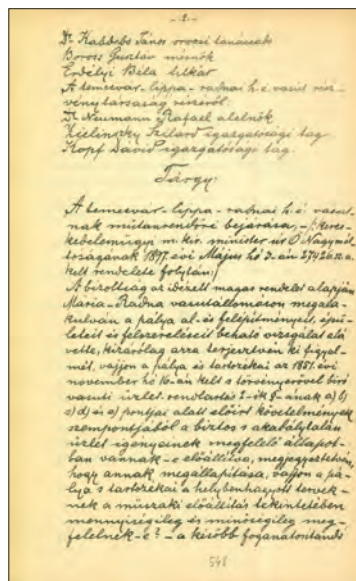 -2-
Dr Kabdebo János orvosi tanácsos
Boross Gusztáv mérnök
Erdélyi Béla titkár
A temesvár-lippa-radnai h.é. vasút rész-
vénytársaság részéről:
Dr Neumann Rafael alelnök
Zielinszky Szilárd igazgatósági tag
Kopf Dávid igazgatósági tag.
Tárgy:
A temesvár-lippa-radnai h.é. vasut-
nak műtanrendőri bejárása, -/: Keres-
kedelemügyi m. kir. minister úr Ő Nagymél-
tóságának 1897. évi Május hó 3-án 27426 sz. a.
kelt rendelete folytán:/
A bizottság az idézett magas rendelet alapján
Mária-Radna vasútállomáson megala-
kulván a pálya al- és felépítményeit, épü-
leteit és felszereléseit beható vizsgálat alá
vette, kizárólag arra terjesztvén ki figyel-
mét, vajjon a pálya és tartozékai az 1851. évi
november hó 16-án kelt s törvényerővel bíró
vasuti üzlet-rendtartás 2-ik §-ának a) b)
c) d) és e) pontjai alatt előirt követelmények
szempontjából a biztos s akadálytalan
üzlet igényeinek megfelelő állapot-
ban vannak-e előállítva, megjegyeztetvén,
hogy annak megállapítása, vajjon a pá-
lya s tartozékai a helybenhagyott tervek-
nek a műszaki előállítás tekintetében
mennyiségileg és minőségileg meg-
felelnek-e? - a később foganatositandó
548